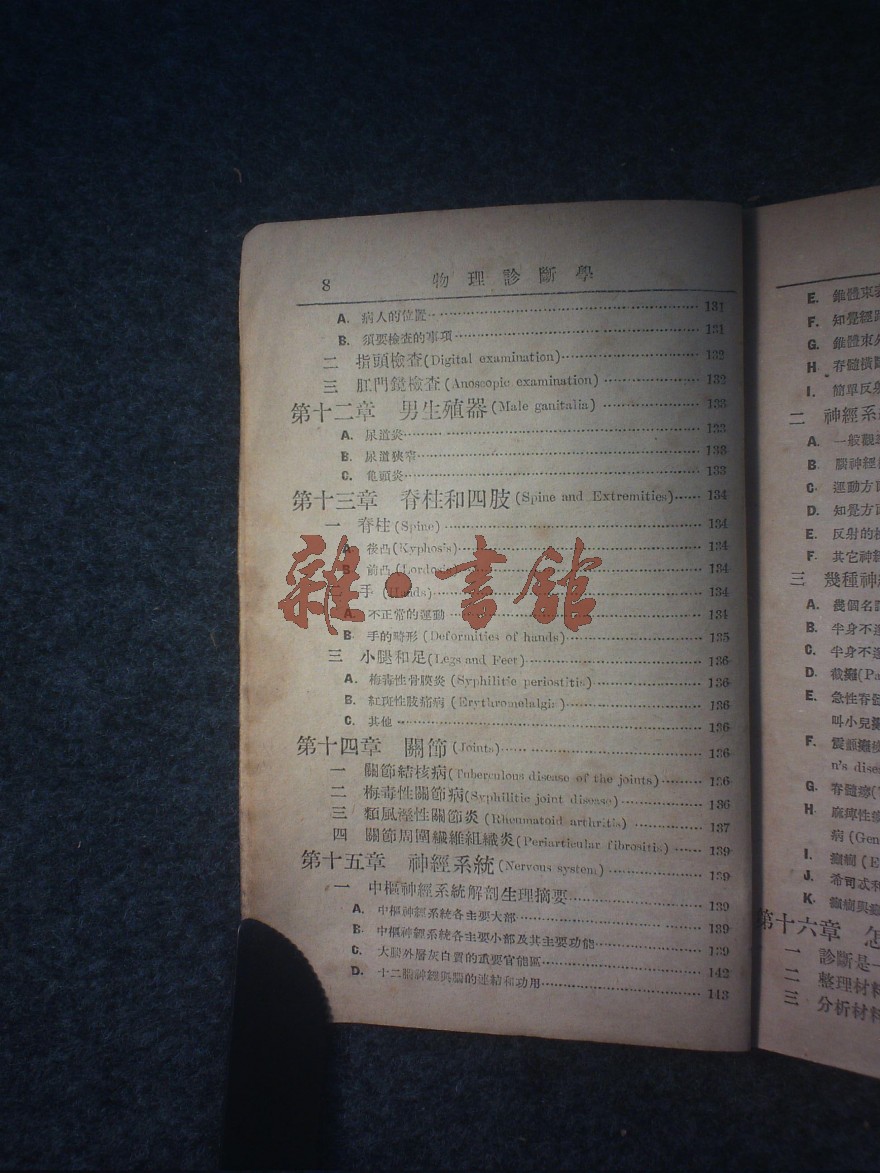 8 物理診斷學
A. 病人的位置 131
B. 須要檢查的事項 131
二 指頭檢查(Digital examination) 132
三 肛門鏡檢查(Anoscopic examination) 132
第十二章 男生殖器(Male ganitalia) 133
A. 尿道炎 133
B. 尿道狹窄 133
C. 龟頭炎 133
第十三章 脊柱和四肢(Spine and Extremities) 134
一 脊柱(Spine) 134
A. 後凸(Kyphosis) 134
B. 前凸(Lordosis) 134
二 手(Hands) 134
A. 不正常的運動 134
B 手的畸形(Deformities of hands) 135
三 小腿和足(Legs and Feet) 136
A. 梅毒性骨膜炎(Syphilitic periostitis) 136
B. 紅斑性肢痛病(Erythromelalgia) 136
C. 其他 136
第十四章 關節(Joints) 136
一 關節結核病(Tuberculous disease of the joints) 136
二 梅毒性關節病(Syphilitic joint disease) 136
三 類風溼性關節炎(Rheumatoid arthritis) 137
四 關節周圍纖維組織炎(Periarticular fibrositis) 139
第十五章 神經系統(Nervous system) 139
一 中樞神經系統解剖生理摘要 139
A. 中樞神經系統各主要大部 139
B 中樞神經系統各主要小部及其主要功能 139
C. 大腦外層灰白質的重要官能區 142
D. 十二腦神經與腦的連結和功用 143
雜·書館
E. 錐體束
F. 知覺經
G. 錐體束
H 脊髓橫
I. 簡單反射
二 神經系
A. 一般觀
B. 腦神經
C. 運動方面
D. 知覺方面
E. 反射的
F. 其它神經
三 幾種神
A. 幾個名
B. 半身不
C. 半身不
D. 截癱(Pa
E. 急性脊髓
叫小兒
F. 震顫
n's dise
G. 脊髓癆(
H. 麻痺性
病(Gen
I. 癲癇(E
J. 希司忒利
K. 癲癇與
第十六章 怎
一 診斷是一
二 整理材料
三 分析材料